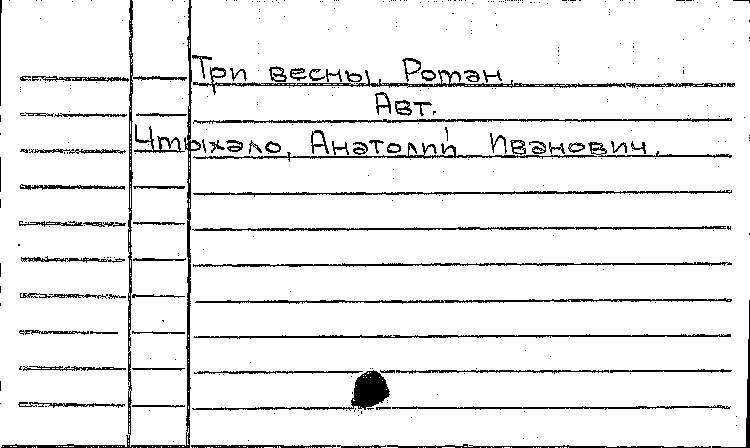 Три весны. Роман.
Авт.
Чмыхало, Анатолий Иванович.